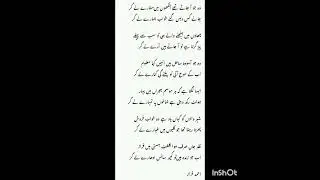 وہ جو آ جاتے تھے آنکھوں میں ستارے لے کر
جانے کس دیس گئے خواب ہمارے لے کر
چھاؤں میں بیٹھنے والے ہی تو سب سے پہلے
پیڑ گرتا ہے تو آ جاتے ہیں آرے لے کر
وہ جو آسودۂ ساحل ہیں انہیں کیا معلوم
اب کے موج آئی تو پلٹے گی کنارے لے کر
ایسا لگتا ہے کہ ہر موسم ہجراں میں بہار
ہونٹ رکھ دیتی ہے شاخوں پہ تمہارے لے کر
شہر والوں کو کہاں یاد ہے وہ خواب فروش
پھرتا رہتا تھا جو گلیوں میں غبارے لے کر
نقد جاں صرف ہوا کلفت ہستی میں فراز
اب جو زندہ ہیں تو کچھ سانس ادھارے لے کر
احمد فراز
InShOt